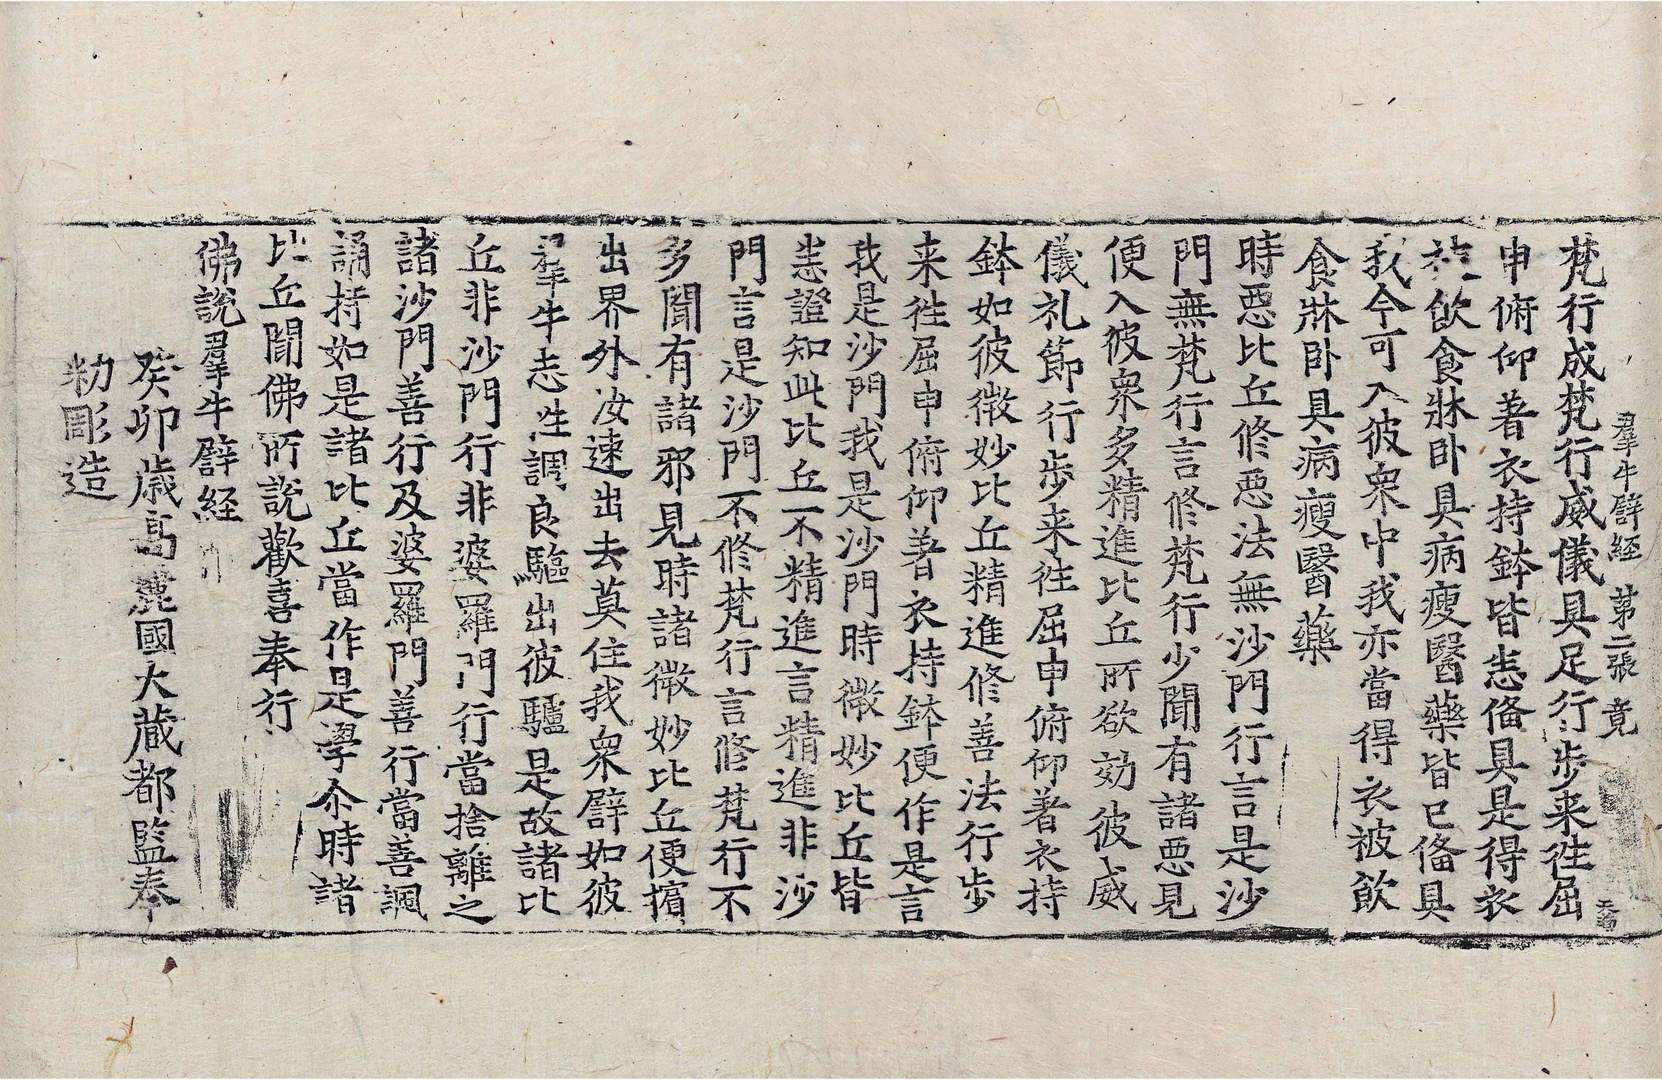 羣牛譬経 第二張 竟
梵行成梵行威儀具足行步来往屈
申俯仰著衣持鉢皆悉俻具是得衣
被飲食牀卧具病瘦醫藥皆已俻具
我今可入彼衆中我亦當得衣被飲
食牀卧具病瘦醫藥
時惡比丘修惡法無沙門行言是沙
門無梵行言修梵行少聞有諸惡見
便入彼衆多精進比丘所欲効彼威
儀礼節行步来往屈申俯仰著衣持
鉢如彼微妙比丘精進修善法行步
来往屈申俯仰著衣持鉢便作是言
我是沙門我是沙門時微妙比丘皆
悉證知此比丘不精進言精進非沙
門言是沙門不修梵行言修梵行不
多聞有諸邪見時諸微妙比丘便擯
出界外汝速出去莫住我衆譬如彼
羣牛志性調良驅出彼驢是故諸比
丘非沙門行非婆羅門行當捨離之
諸沙門善行及婆羅門善行當善諷
誦持如是諸比丘當作是學尒時諸
比丘聞佛所說歡喜奉行
佛說羣牛譬経
癸卯歲高麗國大藏都監奉
勑彫造